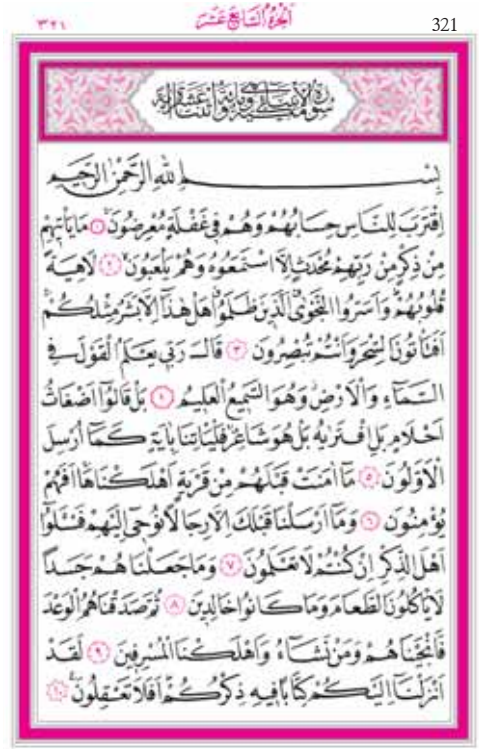 ٣٢١ اَلْجُزْءُ السَّابِعَ عَشَرَ 321
سُورَةُ الْاَنْبِيَاءِ مَكِّيَّةٌ وَهِيَ مِائَةٌ وَاثْنَتَا عَشْرَةَ اٰيَةً
بِسْمِ اللّٰهِ الرَّحْمٰنِ الرَّحِيمِ
اِقْتَرَبَ لِلنَّاسِ حِسَابُهُمْ وَهُمْ فِى غَفْلَةٍ مُعْرِضُونَۚ ﴿١﴾ مَا يَأْتِيهِمْ
مِنْ ذِكْرٍ مِنْ رَبِّهِمْ مُحْدَثٍ اِلَّا اسْتَمَعُوهُ وَهُمْ يَلْعَبُونَۙ ﴿٢﴾ لَاهِيَةً
قُلُوبُهُمْۜ وَاَسَرُّوا النَّجْوٰىۗ اَلَّذِينَ ظَلَمُواۗ هَلْ هٰذَٓا اِلَّا بَشَرٌ مِثْلُكُمْۚ
اَفَتَأْتُونَ السِّحْرَ وَاَنْتُمْ تُبْصِرُونَ ﴿٣﴾ قَالَ رَبِّى يَعْلَمُ الْقَوْلَ فِى
السَّمَٓاءِ وَالْاَرْضِۘ وَهُوَ السَّمِيعُ الْعَلِيمُ ﴿٤﴾ بَلْ قَالُٓوا اَضْغَاثُ
اَحْلَامٍ بَلِ افْتَرٰيهُ بَلْ هُوَ شَاعِرٌۚ فَلْيَأْتِنَا بِاٰيَةٍ كَمَٓا اُرْسِلَ
الْاَوَّلُونَ ﴿٥﴾ مَٓا اٰمَنَتْ قَبْلَهُمْ مِنْ قَرْيَةٍ اَهْلَكْنَاهَاۚ اَفَهُمْ
يُؤْمِنُونَ ﴿٦﴾ وَمَٓا اَرْسَلْنَا قَبْلَكَ اِلَّا رِجَالًا نُوحِٓى اِلَيْهِمْ فَسْـَٔلُٓوا
اَهْلَ الذِّكْرِ اِنْ كُنْتُمْ لَا تَعْلَمُونَ ﴿٧﴾ وَمَا جَعَلْنَاهُمْ جَسَدًا
لَا يَأْكُلُونَ الطَّعَامَ وَمَا كَانُوا خَالِدِينَ ﴿٨﴾ ثُمَّ صَدَقْنَاهُمُ الْوَعْدَ
فَاَنْجَيْنَاهُمْ وَمَنْ نَشَٓاءُ وَاَهْلَكْنَا الْمُسْرِفِينَ ﴿٩﴾ لَقَدْ
اَنْزَلْنَٓا اِلَيْكُمْ كِتَابًا فِيهِ ذِكْرُكُمْۜ اَفَلَا تَعْقِلُونَ۟ ﴿١٠﴾